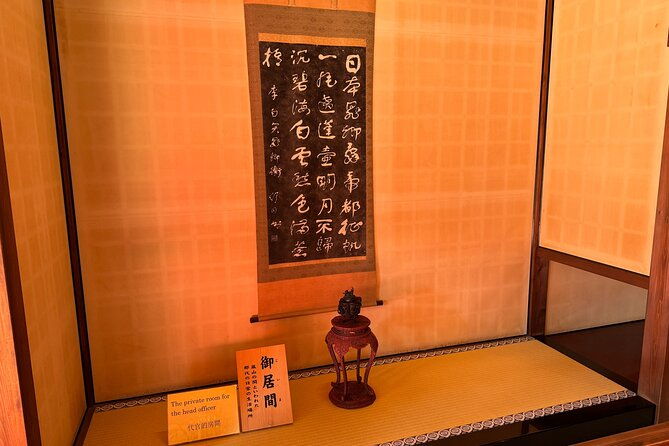 日本晁卿辞帝都征帆
一片遶蓬壺明月不歸
沉碧海白雲愁色滿蒼
梧 李白哭晁卿衡
御居間
嵐山の間といわれた
郡代の日常の生活場所
The private room for
the head officer
代官的房間